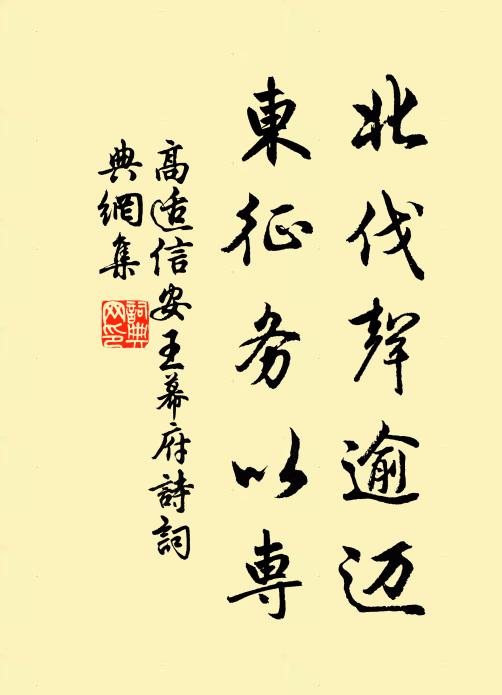 北伐聲逾迈
東征务以専
高适信安王幕府詩詞
典網集
詞典网印